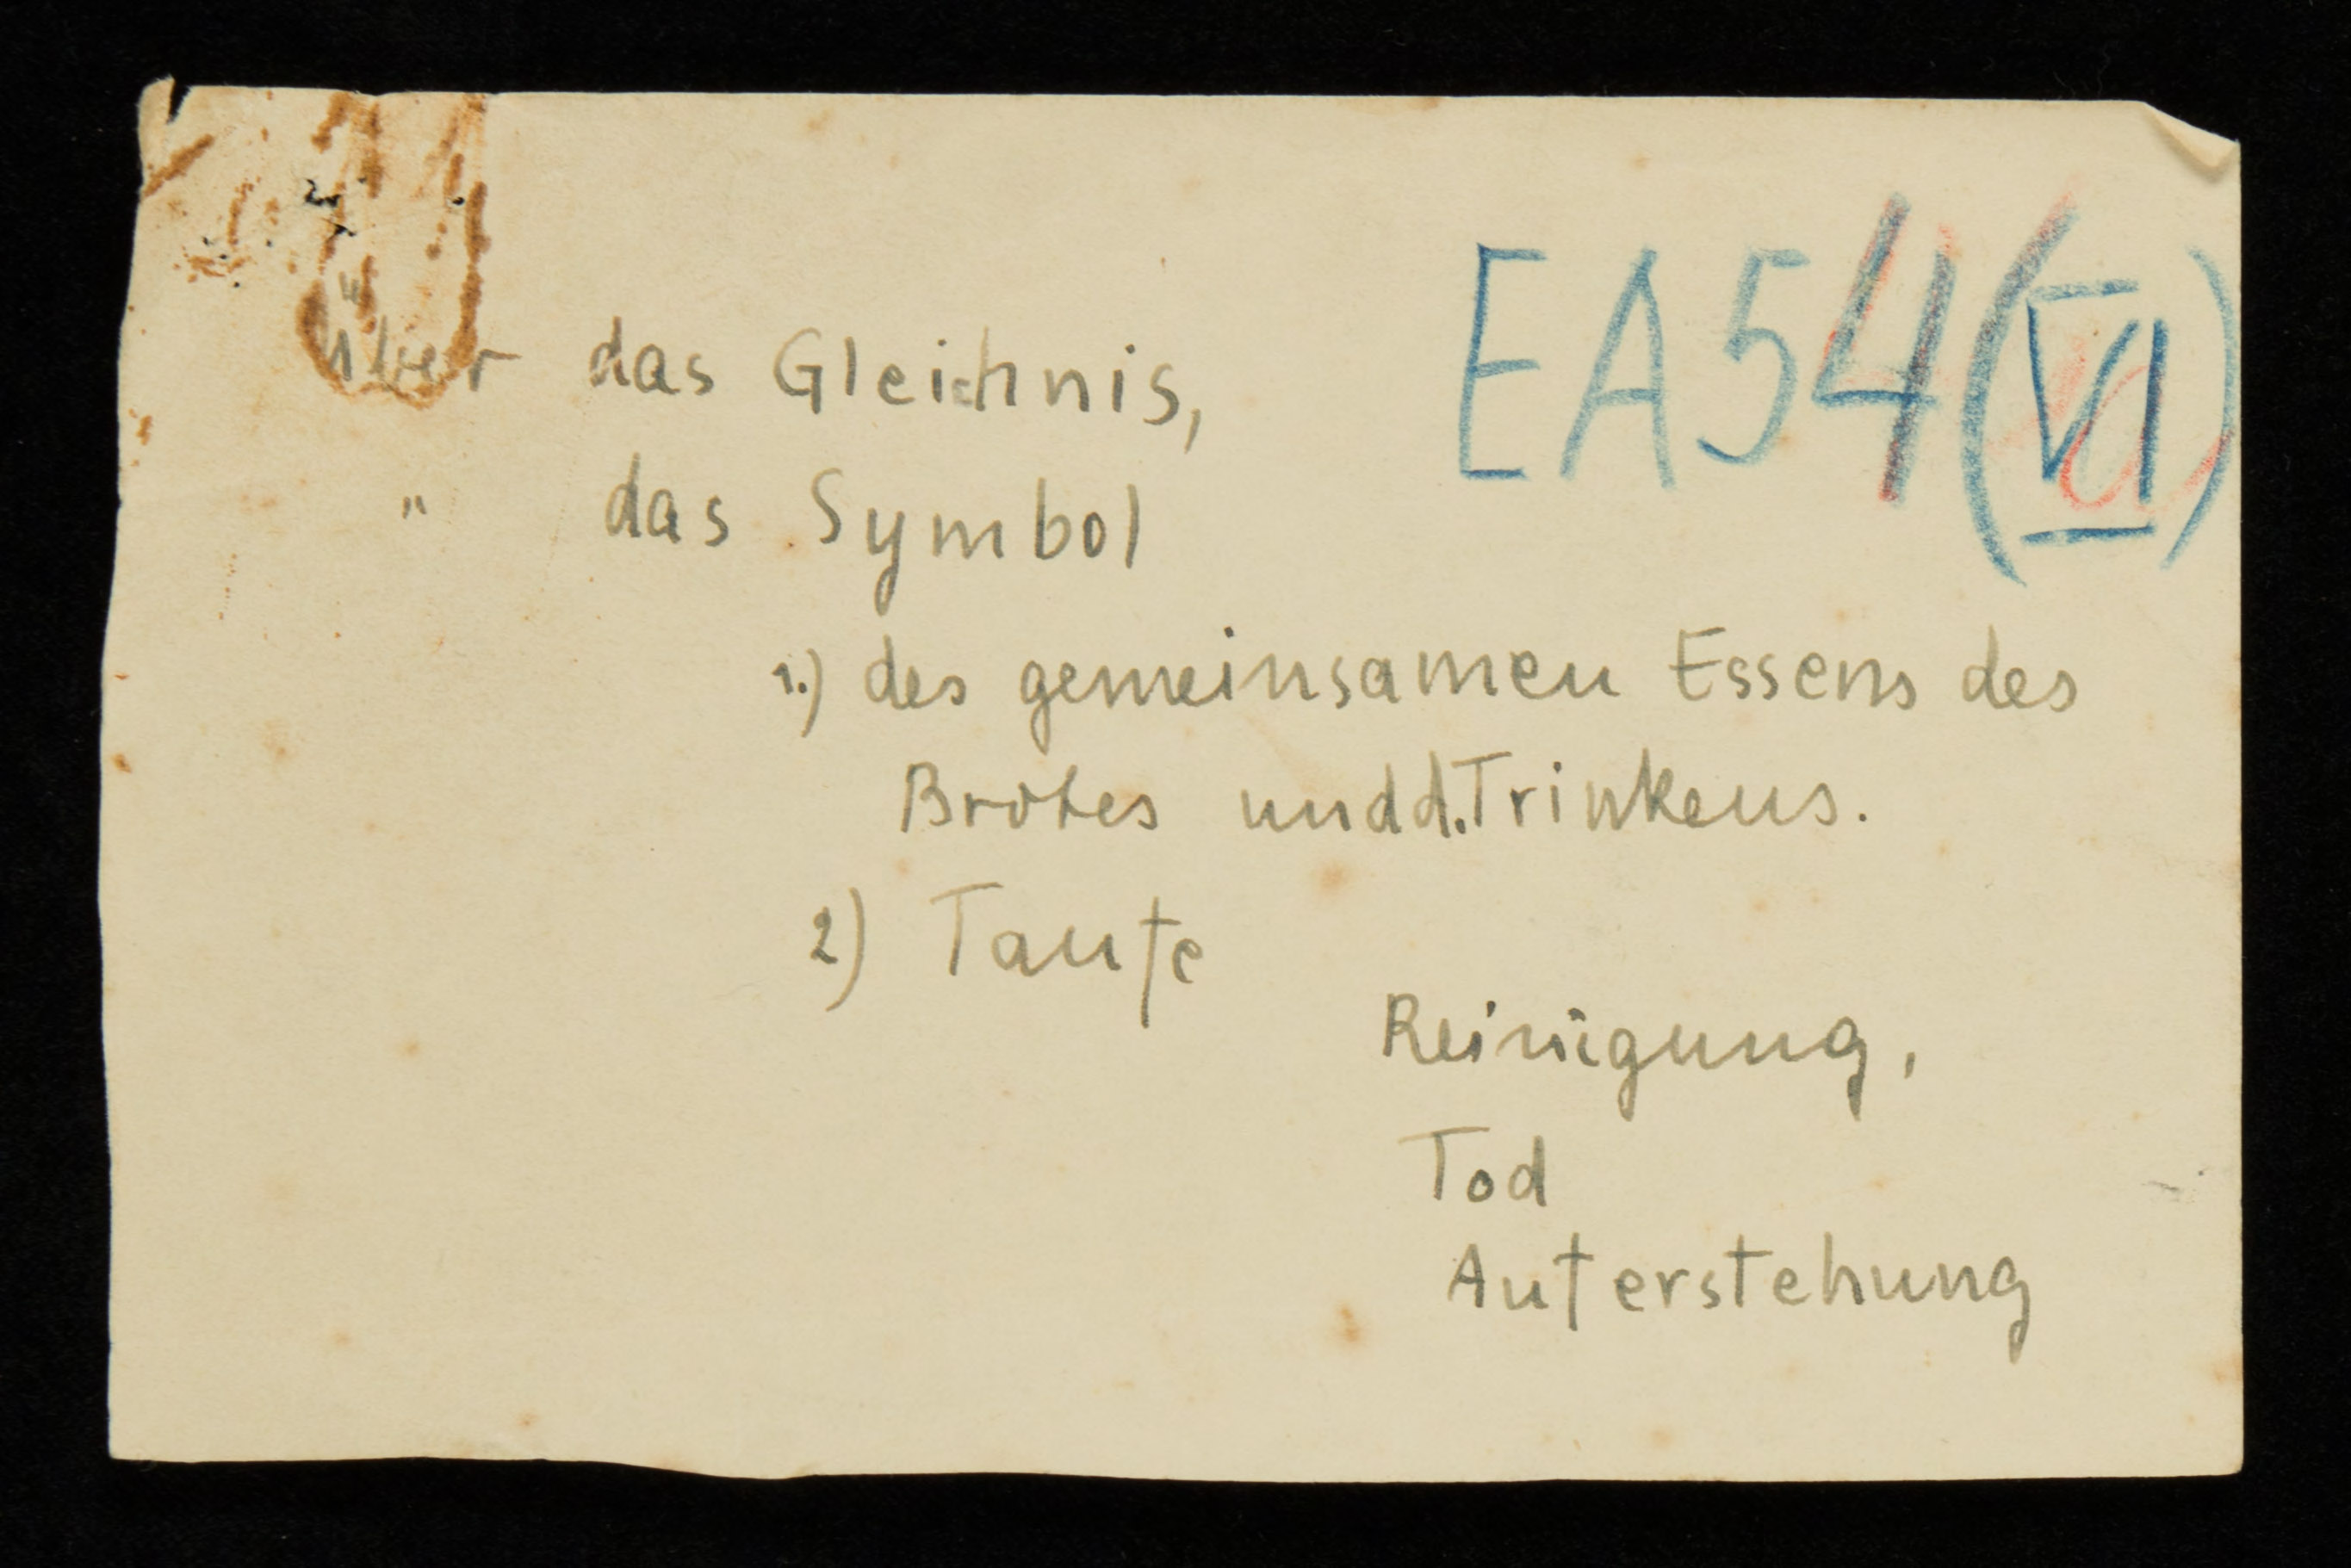 EA54(VI)
über das Gleichnis,
" das Symbol
1.) des gemeinsamen Essens des
Brotes und d. Trinkens.
2) Taufe
Reinigung,
Tod
Auferstehung